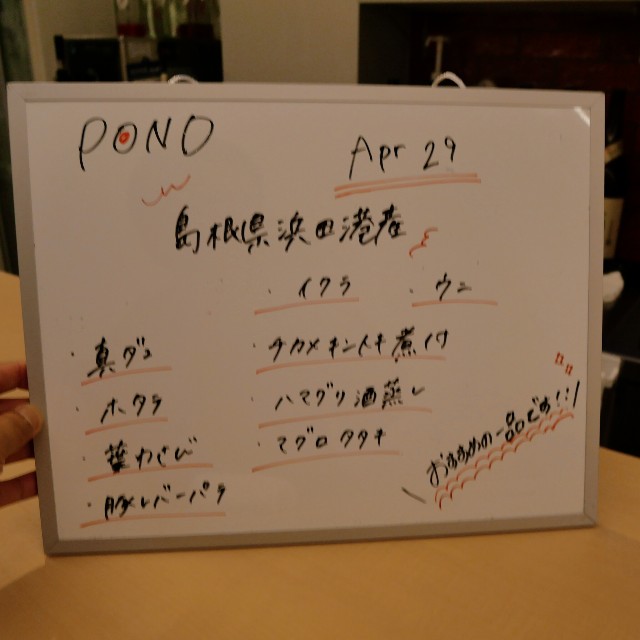 PONO
Apr 29
島根県浜田港産
・イクラ ・ウニ
・真ダコ ・チカメキントキ煮付
・ホタテ ・ハマグリ酒蒸し
・葉わさび ・マグロタタキ
・豚レバーパテ
おすすめの一品どす!!